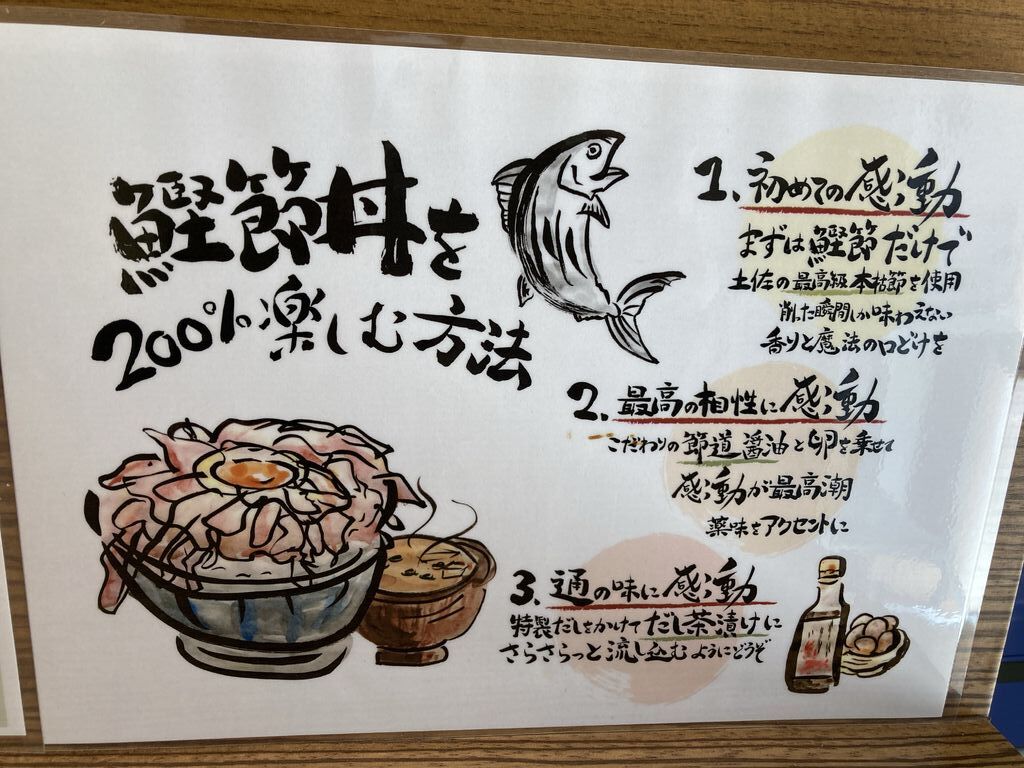 鰹節丼を
200%楽しむ方法
1、初めての感動
まずは鰹節だけで
土佐の最高級本枯節を使用
削た瞬間しか味わえない
香りと魔法の口どけを
2、最高の相性に感動
こだわりの節道醤油と卵を乗せて
感動が最高潮
薬味をアクセントに
3、通の味に感動
特製だしをかけてだし茶漬けに
さらさらっと流し込むようにどうぞ